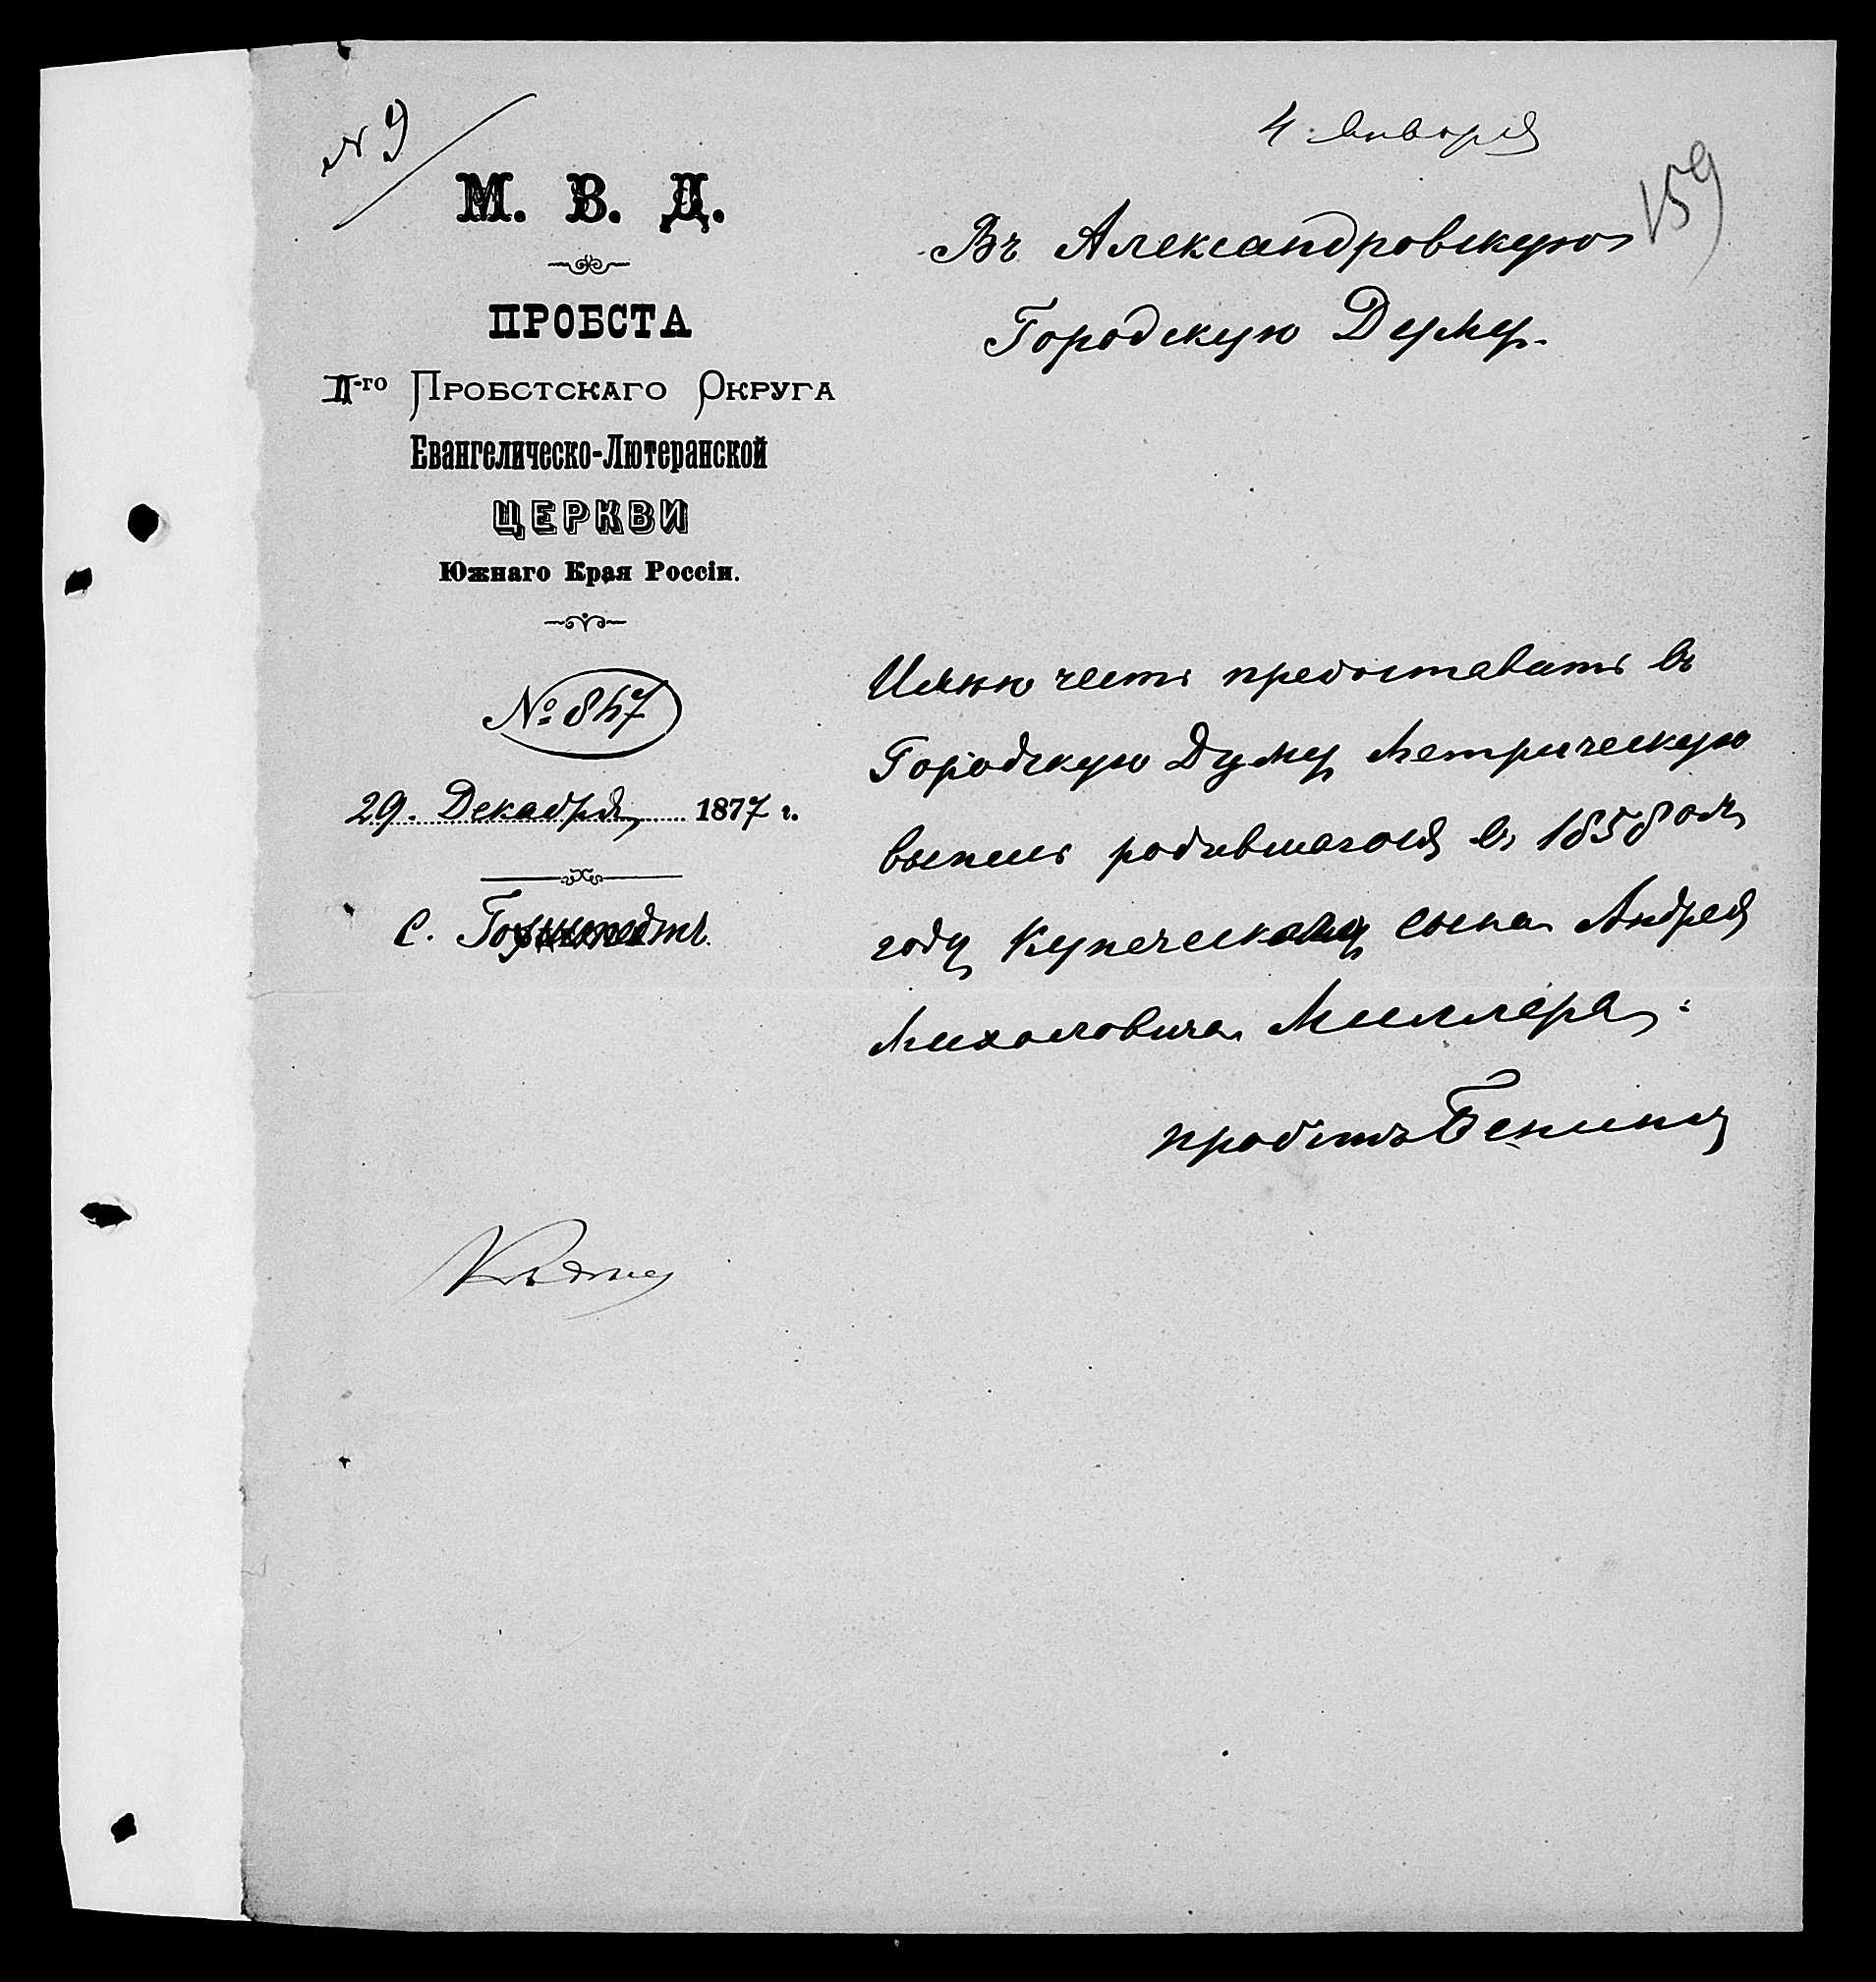 № 9
4 января
159
М. В. Д.
ПРОБСТА
II-го Пробстскаго Округа
Евангелическо-Лютеранской
ЦЕРКВИ
Южнаго Края Россіи.
№ 847
29. Декабря 1877 г.
с.
Въ Александровскую
Городскую Думу.
Имѣю честь предоставить въ
Городскую Думу Метрическую
выпись родившагося въ 1858омъ
году Купеческому сына Андрея
Михаловича Миллера.
пробстъ